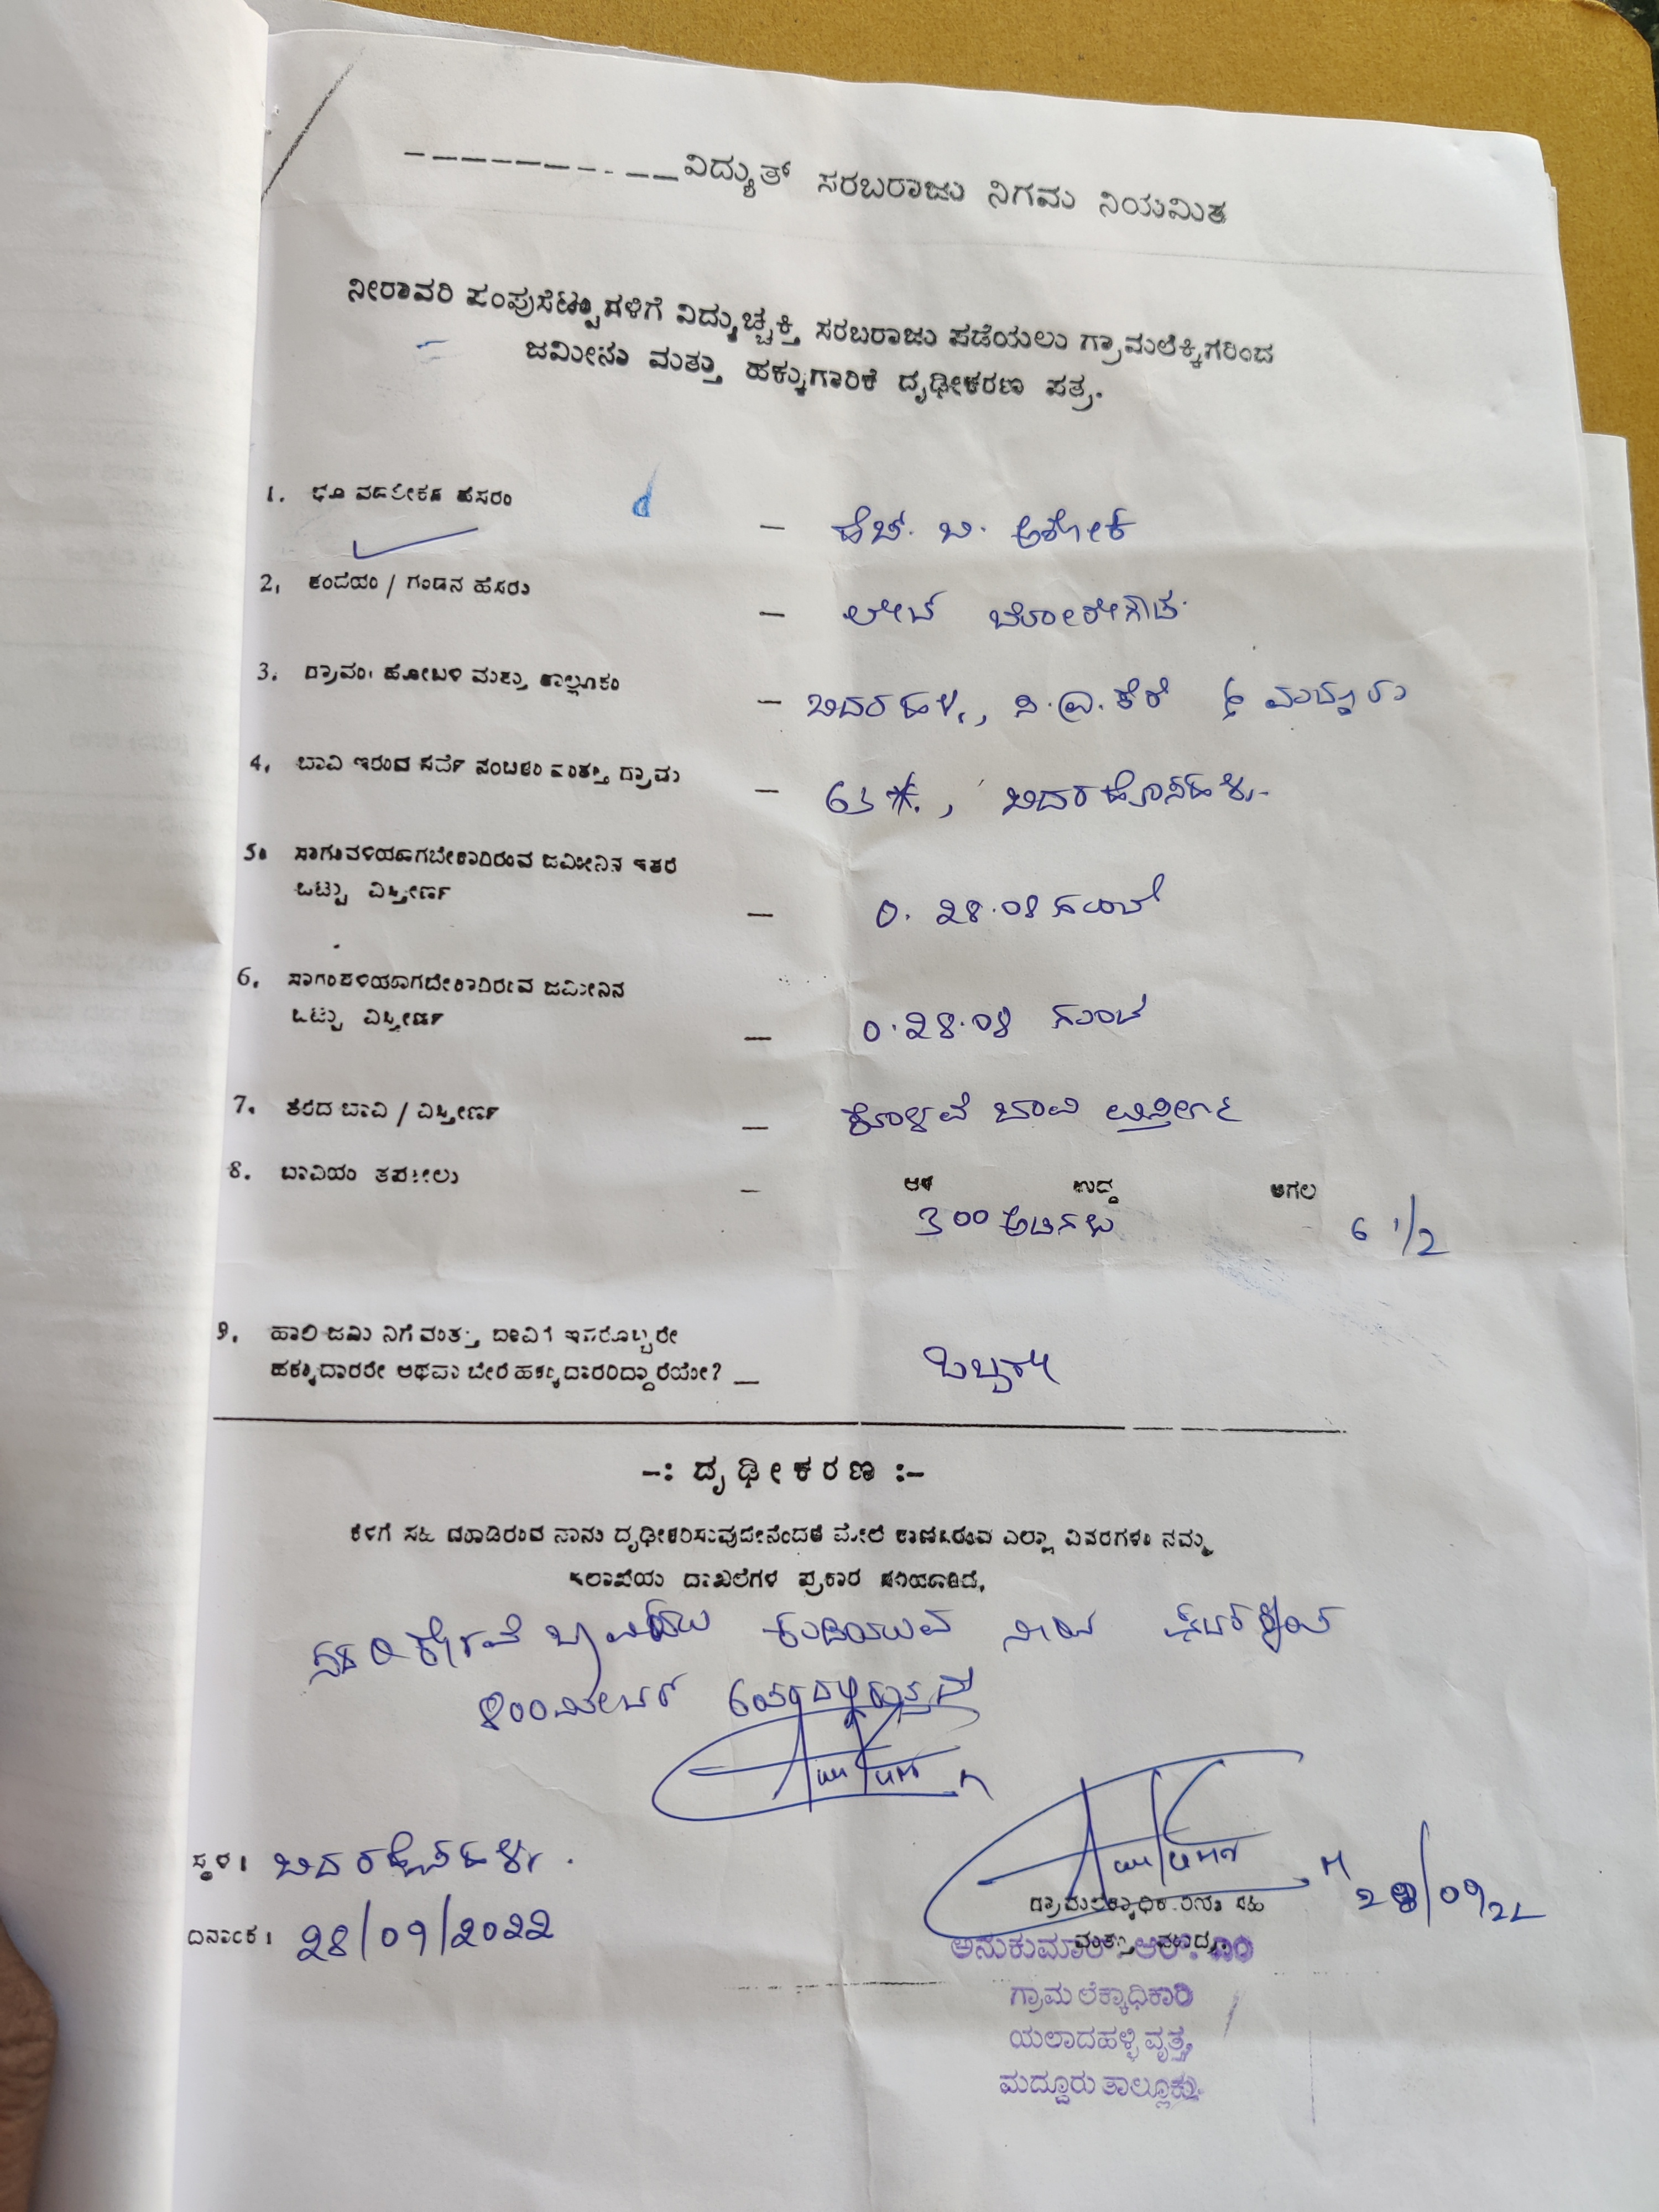 ವಿದ್ಯುತ್ ಸರಬರಾಜು ನಿಗಮ ನಿಯಮಿತ
ನೀರಾವರಿ ಪಂಪುಸೆಟ್ಟುಗಳಿಗೆ ವಿದ್ಯುಚ್ಛಕ್ತಿ ಸರಬರಾಜು ಪಡೆಯಲು ಗ್ರಾಮಲೆಕ್ಕಿಗರಿಂದ
ಜಮೀನು ಮತ್ತು ಹಕ್ಕುಗಾರಿಕೆ ದೃಢೀಕರಣ ಪತ್ರ.
1. ಭೂ ಹೆಸರು – ಹೆಚ್. ಬಿ. ಅಶೋಕ್
2. ತಂದೆಯ / ಗಂಡನ ಹೆಸರು – ಲೇಟ್ ಬೋರೇಗೌಡ.
3. ಗ್ರಾಮ, ಹೋಬಳಿ ಮತ್ತು ತಾಲ್ಲೂಕು – ಸಿ.ಎ.ಕೆರೆ ಮದ್ದೂರು
4. ಬಾವಿ ಇರುವ ಸರ್ವೆ ನಂಬರು ಮತ್ತು ಗ್ರಾಮ – ಬಿದರಹೊಸಹಳ್ಳಿ.
5. ಸಾಗುವಳಿಯಾಗಬೇಕಾಗಿರುವ ಜಮೀನಿನ ಇತರೆ
ಒಟ್ಟು ವಿಸ್ತೀರ್ಣ – 0. 28.08 ಗುಂಟೆ
6. ಸಾಗುವಳಿಯಾಗಬೇಕಾಗಿರುವ ಜಮೀನಿನ
ಒಟ್ಟು ವಿಸ್ತೀರ್ಣ – 0.28.08 ಗುಂಟೆ
7. ತೆರೆದ ಬಾವಿ / ವಿಸ್ತೀರ್ಣ – ಕೊಳವೆ ಬಾವಿ ವಿಸ್ತೀರ್ಣ
8. ಬಾವಿಯ ತಪಶೀಲು – ಆಳ ಉದ್ದ ಅಗಲ
300 ಅಡಿಗಳು 6 1/2
9. ಹಾಲಿ ಜಮೀನಿಗೆ ಮತ್ತು ಬಾವಿಗೆ ಇವರೊಬ್ಬರೇ
ಹಕ್ಕುದಾರರೇ ಅಥವಾ ಬೇರೆ ಹಕ್ಕುದಾರರಿದ್ದಾರೆಯೇ? – ಒಬ್ಬರೇ
-: ದೃಢೀಕರಣ :-
ಕೆಳಗೆ ಸಹಿ ಮಾಡಿರುವ ನಾನು ದೃಢೀಕರಿಸುವುದೇನೆಂದರೆ ಮೇಲೆ ಕಾಣಿಸಿರುವ ಎಲ್ಲಾ ವಿವರಗಳು ನಮ್ಮ
ಇಲಾಖೆಯ ದಾಖಲೆಗಳ ಪ್ರಕಾರ ಸರಿಯಾಗಿದೆ.
ಕುಡಿಯುವ ನೀರು
ಸ್ಥಳ: ಬಿದರಹೊಸಹಳ್ಳಿ.
ದಿನಾಂಕ: 28/09/2022
28/09/22
ಗ್ರಾಮಲೆಕ್ಕಾಧಿಕಾರಿಯ ಸಹಿ
ಮತ್ತು
ಅನುಕುಮಾರ್. ಆರ್. ಎಂ
ಗ್ರಾಮ ಲೆಕ್ಕಾಧಿಕಾರಿ
ಯಲಾದಹಳ್ಳಿ ವೃತ್ತ,
ಮದ್ದೂರು ತಾಲ್ಲೂಕು.